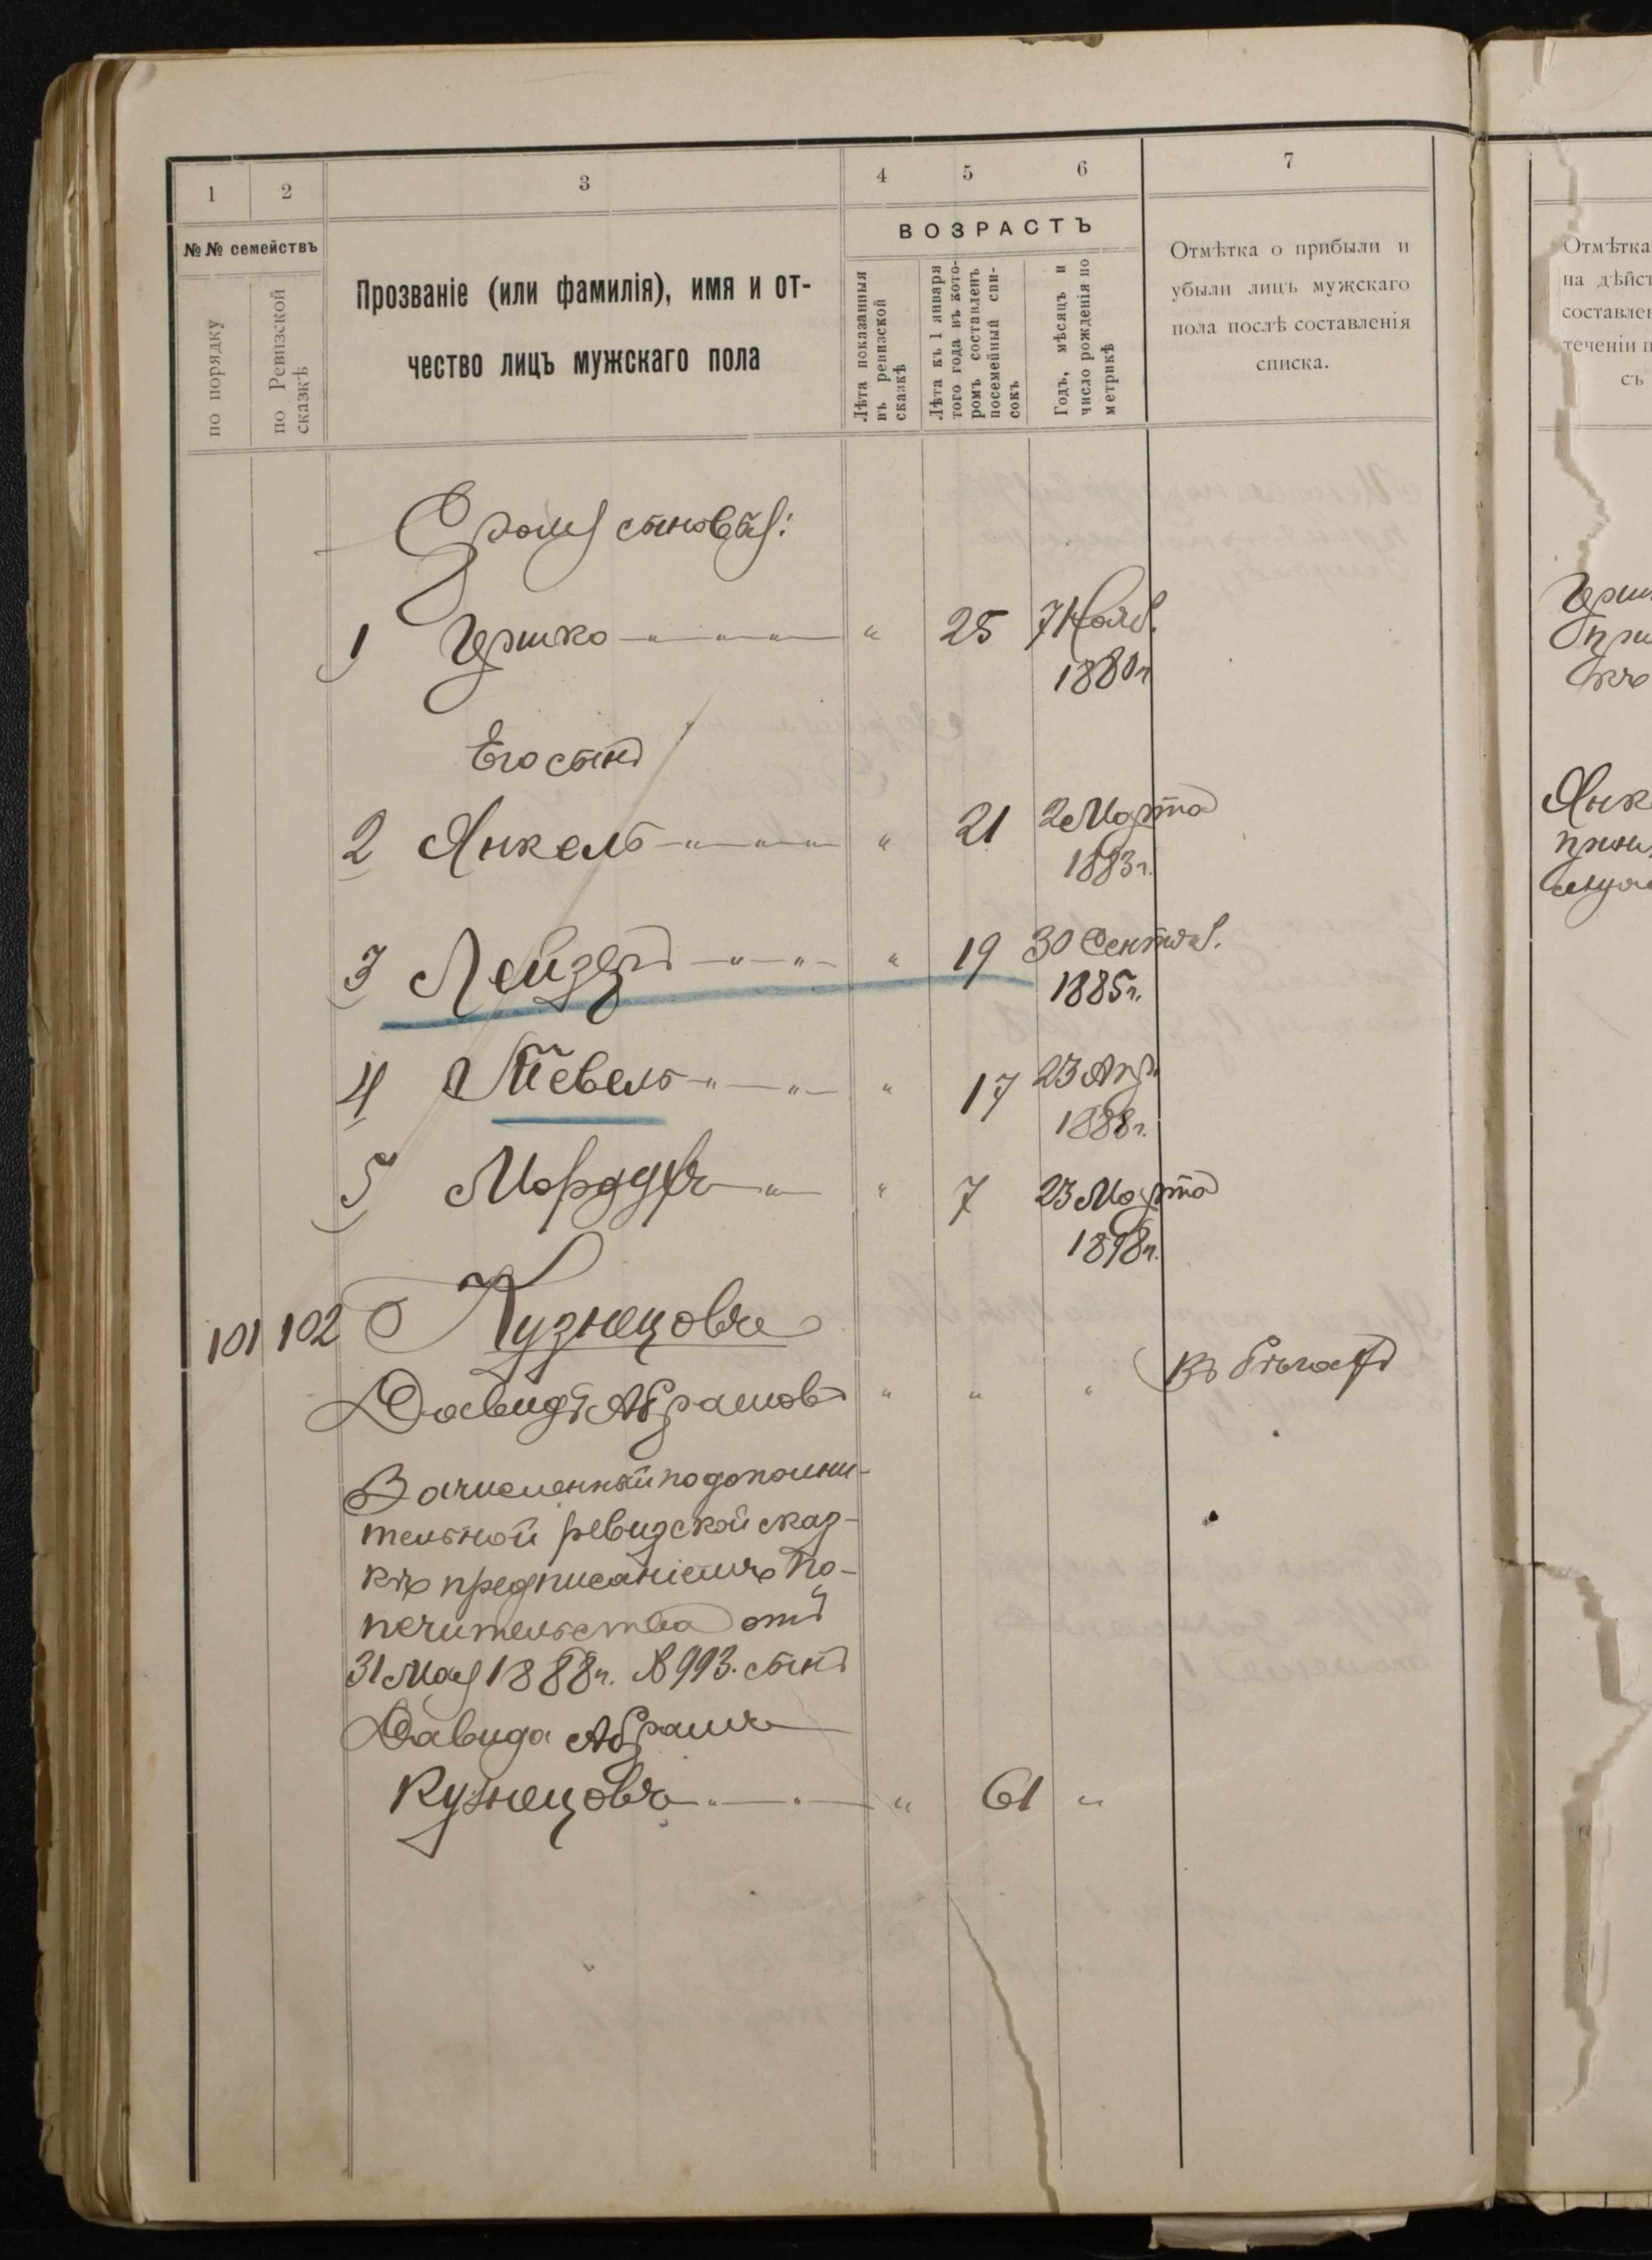 1 2 3 4 5 6 7
№№ семействъ
по порядку
по Ревизской сказкѣ
Прозваніе (или фамилія), имя и от-
чество лицъ мужскаго пола
ВОЗРАСТЪ
Лѣта показанныя
въ ревизской
сказкѣ
Лѣта къ 1 января
того года въ кото-
ромъ составленъ
посемейный спи-
сокъ
Годъ, мѣсяцъ и
число рожденія по
метрикѣ
Отмѣтка о прибыли и
убыли лицъ мужскаго
пола послѣ составленія
списка.
Отмѣтка
на дѣйст
составлен
теченіи п
съ
сыновья:
1 Гершко " 25 7 Нояб.
1880 г.
Его сынъ
2 Янкель " 21 2 Марта
1883 г.
3 Лейзеръ " 19 30 Сентяб.
1885 г.
4 Тевель " 17 23 Апр.
1888 г.
5 Мордухъ " 7 23 Марта
1898 г.
101 102 Кузнецовъ
Давидъ Абрамовъ " " " въ бѣгахъ
Зачисленный по дополни-
тельной ревизской сказ-
кѣ предписаніемъ По-
печительства отъ
31 Мая 1888 г. № 993. сынъ
Давида Абрамъ
Кузнецовъ " 61 "
Герш
при
Янк